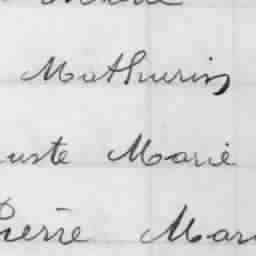 Mathurin
uste Marie
Pierre Mar